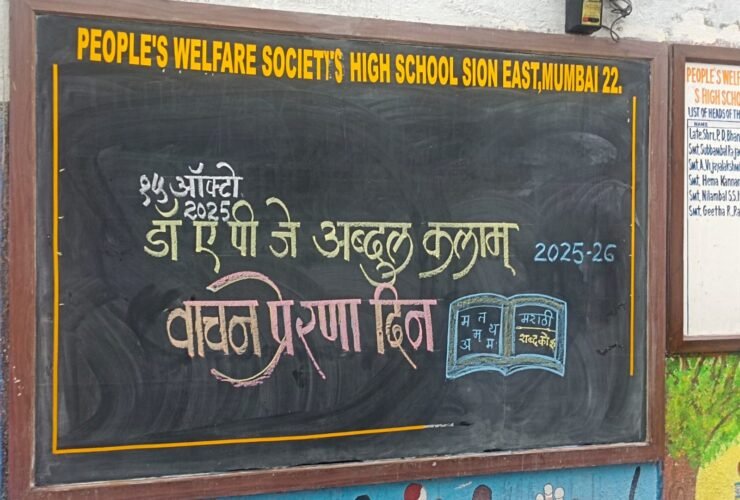 PEOPLE'S WELFARE SOCIETY'S HIGH SCHOOL SION EAST,MUMBAI 22.
१५ ऑक्टो
2025
डॉ ए पी जे अब्दुल कलाम्
2025-26
वाचन प्रेरणा दिन
म त थ
म्
अ म
मराठी
शब्दकोश
PEOPLE'S WELF
'S HIGH SCHO
LIST OF HEADS OF TH
NAME
Late.Shri. P. D. Bhan
Smt. Subbambal Raj
Smt. A. Vijayalakshm
Smt. Hema Kannan
Smt. Nilambal S.S.
Smt. Geetha R. Ra